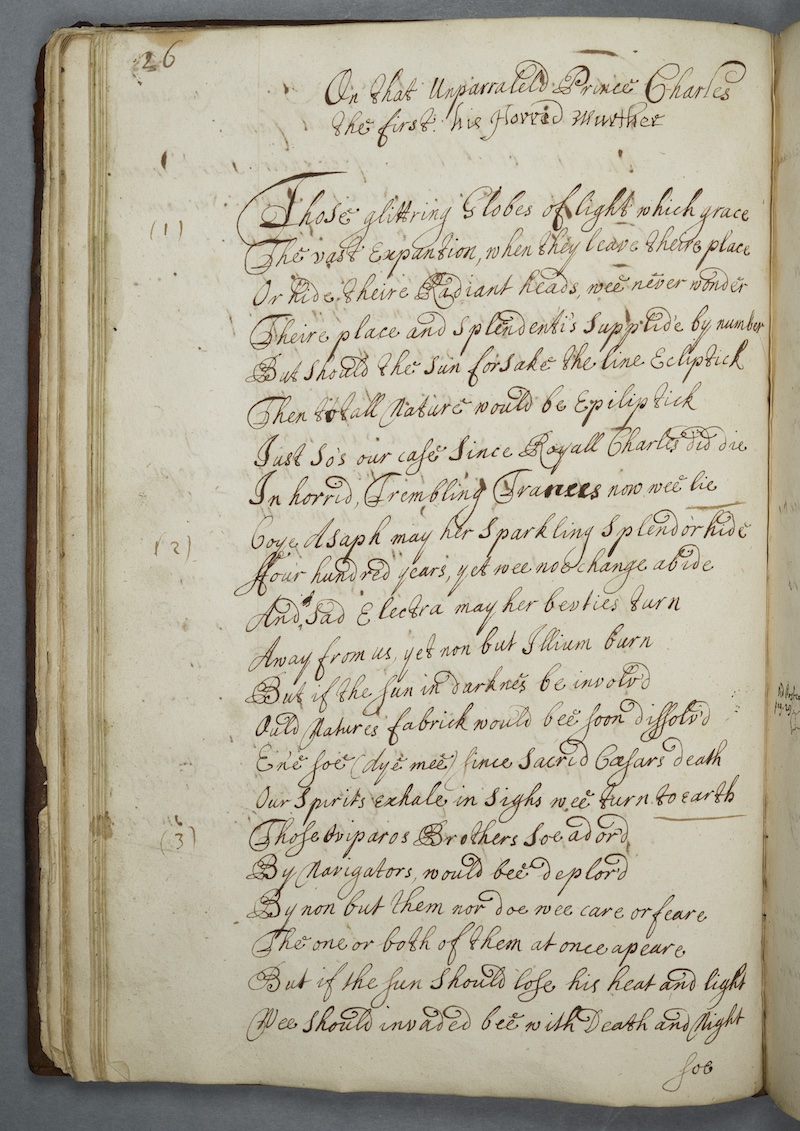 26
On that Unparraleld Prince Charles
the first: his Horrid Murther
(1)
Those glittring Globes of light which grace
The vast Expantion, when they leave theire place
Or hide theire Radiant heads, wee never wonder
Theire place and Splendenti's Suppli'de by number
But should the Sun forsake the line Ecliptick
Then totall Nature would be Epiliptick
Just so's our case since Royall Charles did die
In horrid, Trembling Trances now wee lie
(2)
Coye Asaph may her Sparkling Splendor hide
ffour hundred years, yet wee noe change abide
And Sad Electra may her bevties turn
Away from us, yet non but Illium burn
But if the sun in darknes be involv'd
Ould Natures fabrick would bee soon dissolv'd
E'ne soe (dye mee) since Sacrid Cæsars death
Our Spirits exhale in Sighs wee turn to earth
(3)
Those Oviparos Brothers Soe ador'd
By Navigators, would bee deplor'd
By non but them nor doe wee care or feare
The one or both of them at once apeare
But if the sun should lose his heat and light
Wee should invaded bee with Death and Night
soe